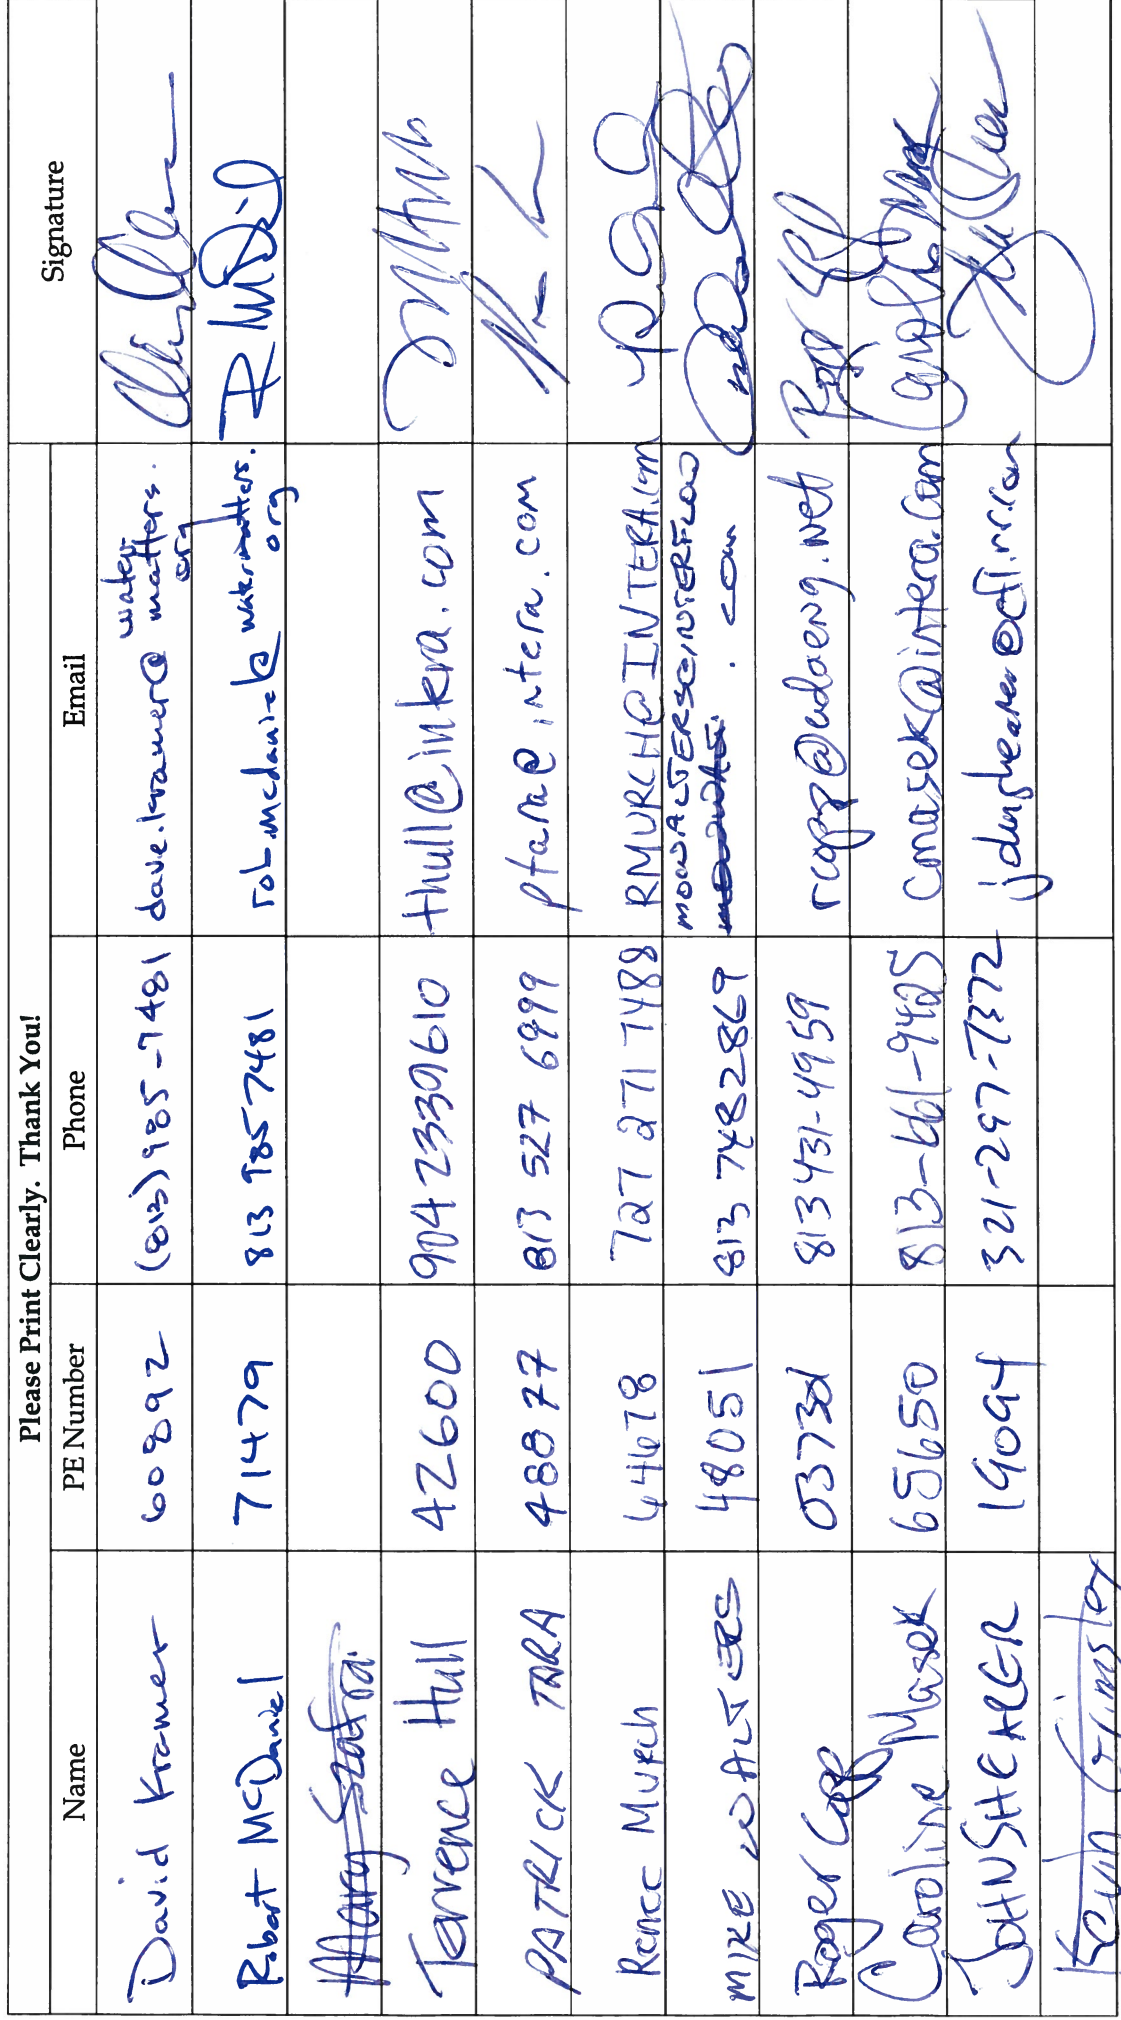 Please Print Clearly. Thank You!
Name PE Number Phone Email Signature
David Kramer 60892 (813) 985-7481 dave.kramer@watermatters.org
Robert McDaniel 71479 813 985 7481 rob.mcdaniel@watermatters.org
Mary Szafra
Terrence Hull 42600 904 2339610 thull@intera.com
PATRICK TARA 48877 813 527 6999 ptara@intera.com
Renee Murch 64678 727 271 7488 RMURCH@INTERA.com
MIKE WALTERS 48051 813 7482869 .com
Roger Copp 813 431-4959
Caroline Masek 65650 813-661-9425 cmasek@intera.com
JOHN SHEARER 19094 321-297-7372 jdmshearer@cfl.rr.com
Kevin Grimsley